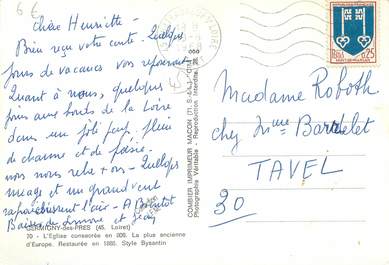 6 €
Chère Henriette -
Bien reçu votre carte - Quelques
jours de vacances vous reposeront
Quant à nous, quelques
jours aux bords de la Loire
dans un joli parc plein
de charme et de poésie.
nous nous retrouvons - Quelques
nuages et un grand vent
rafraîchissent l'air - A Bientôt
Baisers de Simone et Jean
GERMIGNY-des-PRES (45. Loiret)
70 - L'Eglise consacrée en 806. La plus ancienne
d'Europe. Restaurée en 1865. Style Bysantin
COMBIER IMPRIMEUR MACON (71, S.-&-L.)
Photographie Véritable - Reproduction Interdite
0,25
Madame Roboth
chez Mme Barthelet
TAVEL
30